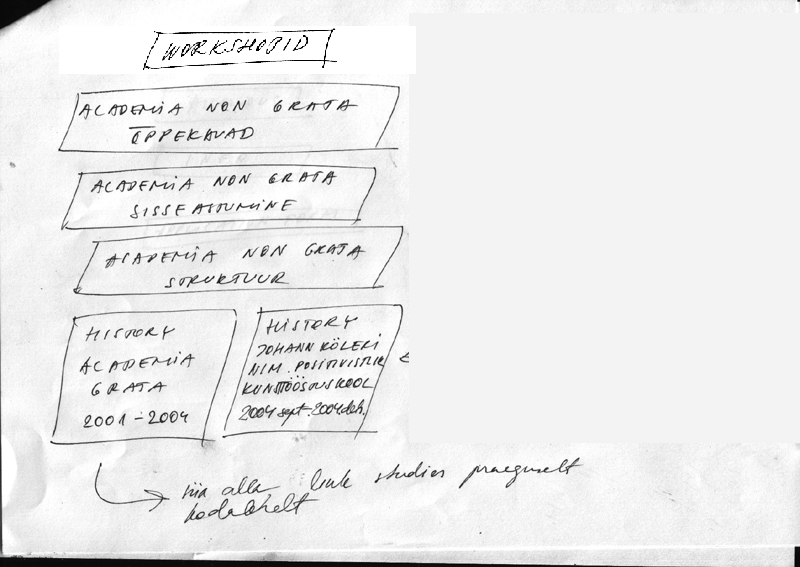 WORKSHOPID
ACADEMIA NON GRATA
ÕPPEKAVAD
ACADEMIA NON GRATA
SISSEASTUMINE
ACADEMIA NON GRATA
STRUKTUUR
HISTORY
ACADEMIA
GRATA
2001-2004
HISTORY
JOHANN KÖLERI
NIM. POSITIVISTLIK
KUNSTTÖÖSTUSKOOL
2004 sept. 2004 dets.
siia alla, link studies praeguselt
kodulehelt